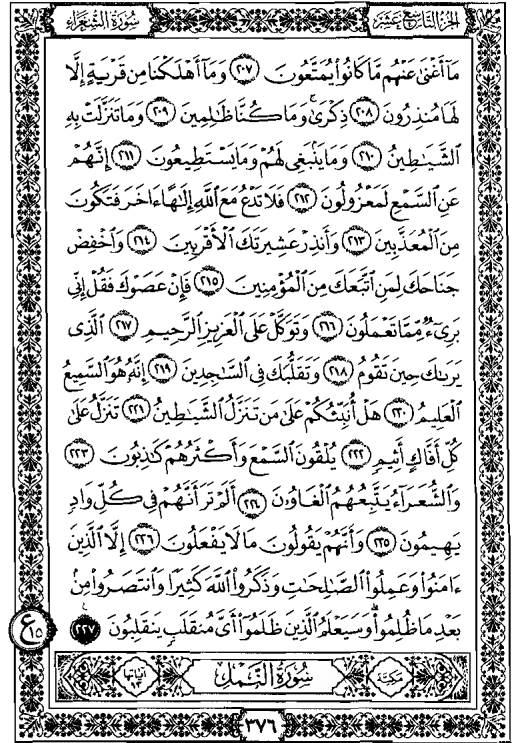 الجزء التاسع عشر سورة الشعراء
مَآ أَغْنَىٰ عَنْهُم مَّا كَانُوا۟ يُمَتَّعُونَ ٢٠٧ وَمَآ أَهْلَكْنَا مِن قَرْيَةٍ إِلَّا
لَهَا مُنذِرُونَ ٢٠٨ ذِكْرَىٰ وَمَا كُنَّا ظَٰلِمِينَ ٢٠٩ وَمَا تَنَزَّلَتْ بِهِ
ٱلشَّيَٰطِينُ ٢١٠ وَمَا يَنۢبَغِى لَهُمْ وَمَا يَسْتَطِيعُونَ ٢١١ إِنَّهُمْ
عَنِ ٱلسَّمْعِ لَمَعْزُولُونَ ٢١٢ فَلَا تَدْعُ مَعَ ٱللَّهِ إِلَٰهًا ءَاخَرَ فَتَكُونَ
مِنَ ٱلْمُعَذَّبِينَ ٢١٣ وَأَنذِرْ عَشِيرَتَكَ ٱلْأَقْرَبِينَ ٢١٤ وَٱخْفِضْ
جَنَاحَكَ لِمَنِ ٱتَّبَعَكَ مِنَ ٱلْمُؤْمِنِينَ ٢١٥ فَإِنْ عَصَوْكَ فَقُلْ إِنِّى
بَرِىٓءٌ مِّمَّا تَعْمَلُونَ ٢١٦ وَتَوَكَّلْ عَلَى ٱلْعَزِيزِ ٱلرَّحِيمِ ٢١٧ ٱلَّذِى
يَرَىٰكَ حِينَ تَقُومُ ٢١٨ وَتَقَلُّبَكَ فِى ٱلسَّٰجِدِينَ ٢١٩ إِنَّهُۥ هُوَ ٱلسَّمِيعُ
ٱلْعَلِيمُ ٢٢٠ هَلْ أُنَبِّئُكُمْ عَلَىٰ مَن تَنَزَّلُ ٱلشَّيَٰطِينُ ٢٢١ تَنَزَّلُ عَلَىٰ
كُلِّ أَفَّاكٍ أَثِيمٍ ٢٢٢ يُلْقُونَ ٱلسَّمْعَ وَأَكْثَرُهُمْ كَٰذِبُونَ ٢٢٣
وَٱلشُّعَرَآءُ يَتَّبِعُهُمُ ٱلْغَاوُۥنَ ٢٢٤ أَلَمْ تَرَ أَنَّهُمْ فِى كُلِّ وَادٍ
يَهِيمُونَ ٢٢٥ وَأَنَّهُمْ يَقُولُونَ مَا لَا يَفْعَلُونَ ٢٢٦ إِلَّا ٱلَّذِينَ
ءَامَنُوا۟ وَعَمِلُوا۟ ٱلصَّٰلِحَٰتِ وَذَكَرُوا۟ ٱللَّهَ كَثِيرًا وَٱنتَصَرُوا۟ مِنۢ
بَعْدِ مَا ظُلِمُوا۟ وَسَيَعْلَمُ ٱلَّذِينَ ظَلَمُوٓا۟ أَىَّ مُنقَلَبٍ يَنقَلِبُونَ ٢٢٧
ع ١٥
مكية سورة النمل آياتها ٩٣
٣٧٦